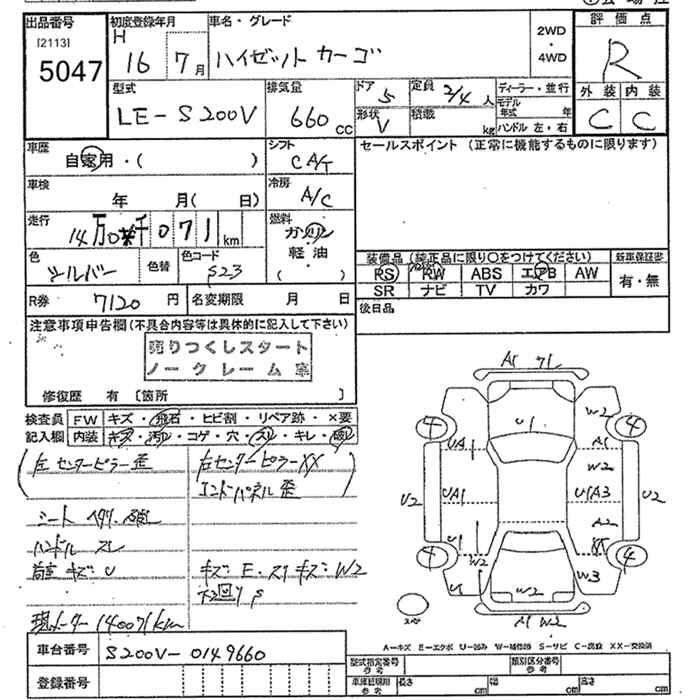 出品番号
[2113]
5047
初度登録年月
H 16 7月
車名・グレード
ハイゼット カーゴ
2WD
・
4WD
評価点
R
型式
LE-S200V
排気量
660 cc
ドア
5
定員 2/4 人
形状
V
積載
kg
ディーラー・並行
モデル年式 年
ハンドル 左・右
外装 内装
C C
車歴
自家用・( )
シフト
CAT
セールスポイント (正常に機能するものに限ります)
車検
年 月( 日)
冷房
A/C
走行
14万0千071 km
燃料
ガソリン
軽油
( )
色
シルバー
色替
色コード
S23
装備品 (純正品に限り○をつけてください)
新車保証書
PS PW ABS エアB AW
有・無
SR ナビ TV カワ
R券 7120 円
名変期限 月 日
後日品
注意事項申告欄(不具合内容等は具体的に記入して下さい)
売りつくしスタート
ノークレーム車
修復歴 有 [箇所 ]
検査員 FW キズ・飛石・ヒビ割・リペア跡・×要
記入欄 内装 キズ・汚レ・コゲ・穴・スレ・キレ・破レ
左センターピラー歪
右センターピラーXX
エンドパネル歪
シート ヘタリ・破レ
ハンドル スレ
キズ U
キズ E・スリキズ W2
下回り S
現メーター 140071km
A1 71
4 4
U1
W2
UA1
A1
W2
U2
UA1
U1A3
U2
A2
U1
XX
W2
4 4
U1
W2
W3
A1 W2
スペア
A-キズ E-エクボ U-凹み W-補修跡 S-サビ C-腐食 XX-交換済
車台番号 S200V-0149660
登録番号
型式指定番号
参考
類別区分番号
参考
車庫証明用
参考
長さ cm
幅 cm
高さ cm